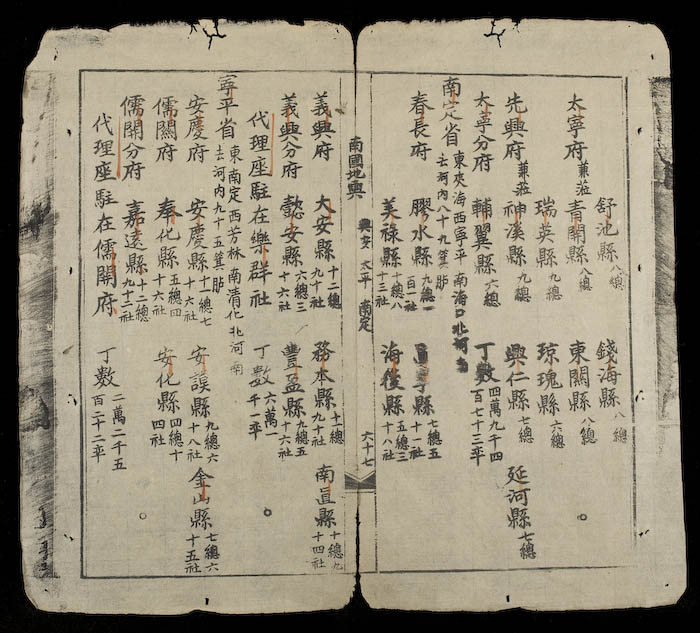 舒池縣八總　錢海縣八總
太寧府兼蒞青關縣八總　東關縣八總
瑞英縣九總　琼瑰縣六總
先興府兼蒞神溪縣九總　興仁縣七總　延河縣七總
太寧分府　輔翼縣六總　丁数四萬九千四百七十三卒
南定省東夾海西寧平南海口北河南去河内八十九箕𦙫
春長府　膠水縣九總一百一社　縣七總五十一社
美祿縣十總八十三社　海後縣五總三十八社
南國地輿　興安　太平　南定　六十七
義興府　大安縣十二總九十社　務本縣十一總九十社　南直縣十總九十四社
義興分府　懿安縣六總三十六社　豐盈縣九總五十六社
代理座駐在樂群社　丁數六萬一千一卒
寧平省東南定西芳林南清化北河南去河内九十五箕𦙫
安慶府　安慶縣十一總七十六社　安謨縣九總六十八社　金山縣七總六十五社
儒關府　奉化縣五總四十六社　安化縣四總十四社
儒關分府　嘉遠縣十二總九十二社
代理座駐在儒關府　丁数二萬二千五百二十二卒